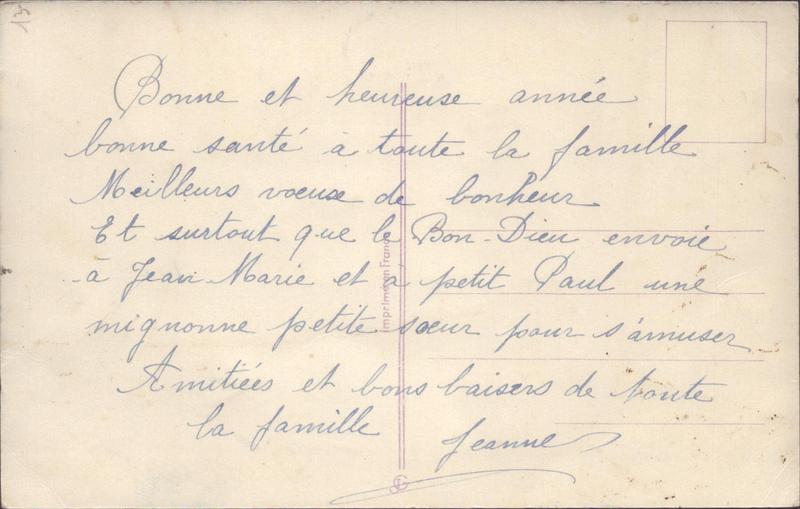 13
Bonne et heureuse année
bonne santé à toute la famille
Meilleurs voeux de bonheur
Et surtout que le Bon-Dieu envoie
à Jean-Marie et à petit Paul une
mignonne petite sœur pour s'amuser
Amitiées et bons baisers de toute
la famille
Jeanne
Imprimé en France